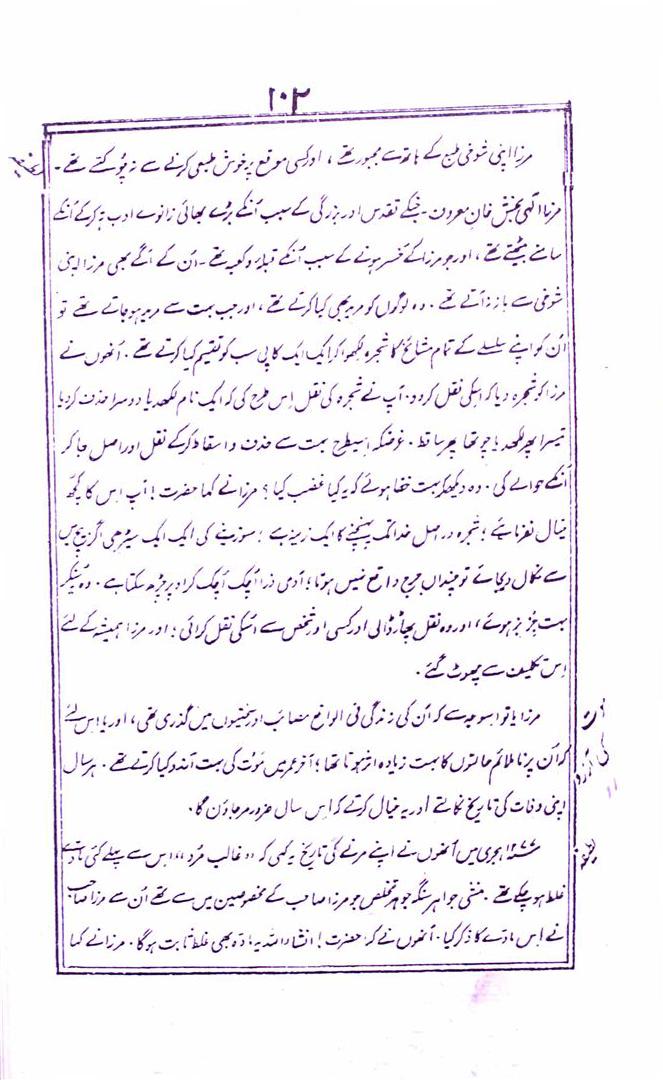 ۱۰۲
مرزا اپنی شوخیِ طبع کے ہاتھ سے مجبور تھے، اور کسی موقع پر خوش طبعی کرنے سے نہ چوکتے تھے۔
لطیفہ
مرزا الٰہی بخش خان معروف۔ جنکے تقدس اور بزرگی کے سبب اُنکے بڑے بھائی زانوے ادب تہ کرکے اُنکے
سامنے بیٹھتے تھے، اور جو مرزا کے خسر ہونے کے سبب اُنکے قبلہ و کعبہ تھے۔ اُن کے آگے بھی مرزا اپنی
شوخی سے باز نہ آتے تھے۔ وہ لوگوں کو مرید بھی کیا کرتے تھے، اور جب بہت سے مرید ہوجاتے تھے تو
اُن کو اپنے سلسلے کے تمام مشائخ کا شجرہ لکھوا کر ایک ایک کاپی سب کو تقسیم کیا کرتے تھے۔ اُنھوں نے
مرزا کو شجرہ دیا کہ اسکی نقل کردو۔ آپ نے شجرہ کی نقل اِس طرح کی کہ ایک نام لکھدیا دوسرا حذف کردیا
تیسرا پھر لکھدیا چوتھا پھر ساقط۔ غرضکہ اسیطرح بہت سے حذف و اسقاط کرکے نقل اور اصل جا کر
اُنکے حوالے کی۔ وہ دیکھکر بہت خفا ہوئے کہ یہ کیا غضب کیا؟ مرزا نے کہا حضرت! آپ اِس کا کچھ
خیال نفرمائیے؛ شجرہ در اصل خدا تک پہنچنے کا ایک زینہ ہے؛ سو زینے کی ایک ایک سیڑھی اگر بیچ میں
سے نکال دیجائے تو چنداں ہرج واقع نہیں ہوتا؛ آدمی ذرا اُچک اُچک کر اوپر چڑھ سکتا ہے۔ وہ سُنکر
بہت جُزبز ہوئے، اور وہ نقل پھاڑ ڈالی اور کسی اور شخص سے اُسکی نقل کرائی؛ اور مرزا ہمیشہ کے لئے
اِس تکلیف سے چھوٹ گئے۔
مرزا یا تو اسوجہ سے کہ اُن کی زندگی فی الواقع مصائب اور سختیوں میں گذری تھی، اور یا اِس لئے
کہ اُن پر ناملائم حالتوں کا بہت زیادہ اثر ہوتا تھا؛ آخر عمر میں مَوت کی بہت آرزو کیا کرتے تھے۔ ہر سال
کی آرزو
اپنی وفات کی تاریخ نکالتے اور یہ خیال کرتے کہ اِس سال ضرور مرجاؤں گا۔
لطیفہ
۱۲۷۷ ہجری میں اُنھوں نے اپنے مرنے کی تاریخ یہ کہی کہ "غالب مُرد" اِس سے پہلے کئی مادّے
غلط ہو چکے تھے۔ منشی جواہر سنگھ جوہر تخلص جو مرزا صاحب کے مخصوصین میں سے تھے اُن سے مرزا صاحب
نے اِس مادّے کا ذکر کیا۔ اُنھوں نے کہا حضرت! انشاء اللہ یہ مادّہ بھی غلط ثابت ہوگا۔ مرزا نے کہا